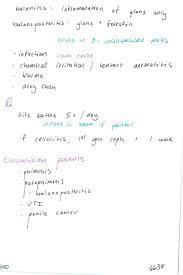 balanitis : inflammation of glans only
balanoposthitis : glans + foreskin
occurs in 3% uncircumcised males
- infection usual cause
- chemical irritation / contact dermatitis
- trauma
- drug rash
Rx
sitz baths 5x / day
urinate in bath if painful
if cellulitis, 1st gen ceph x 1 week
Circumcision prevents
- phimosis
- paraphimosis
- balanoposthitis
- UTI
- penile cancer